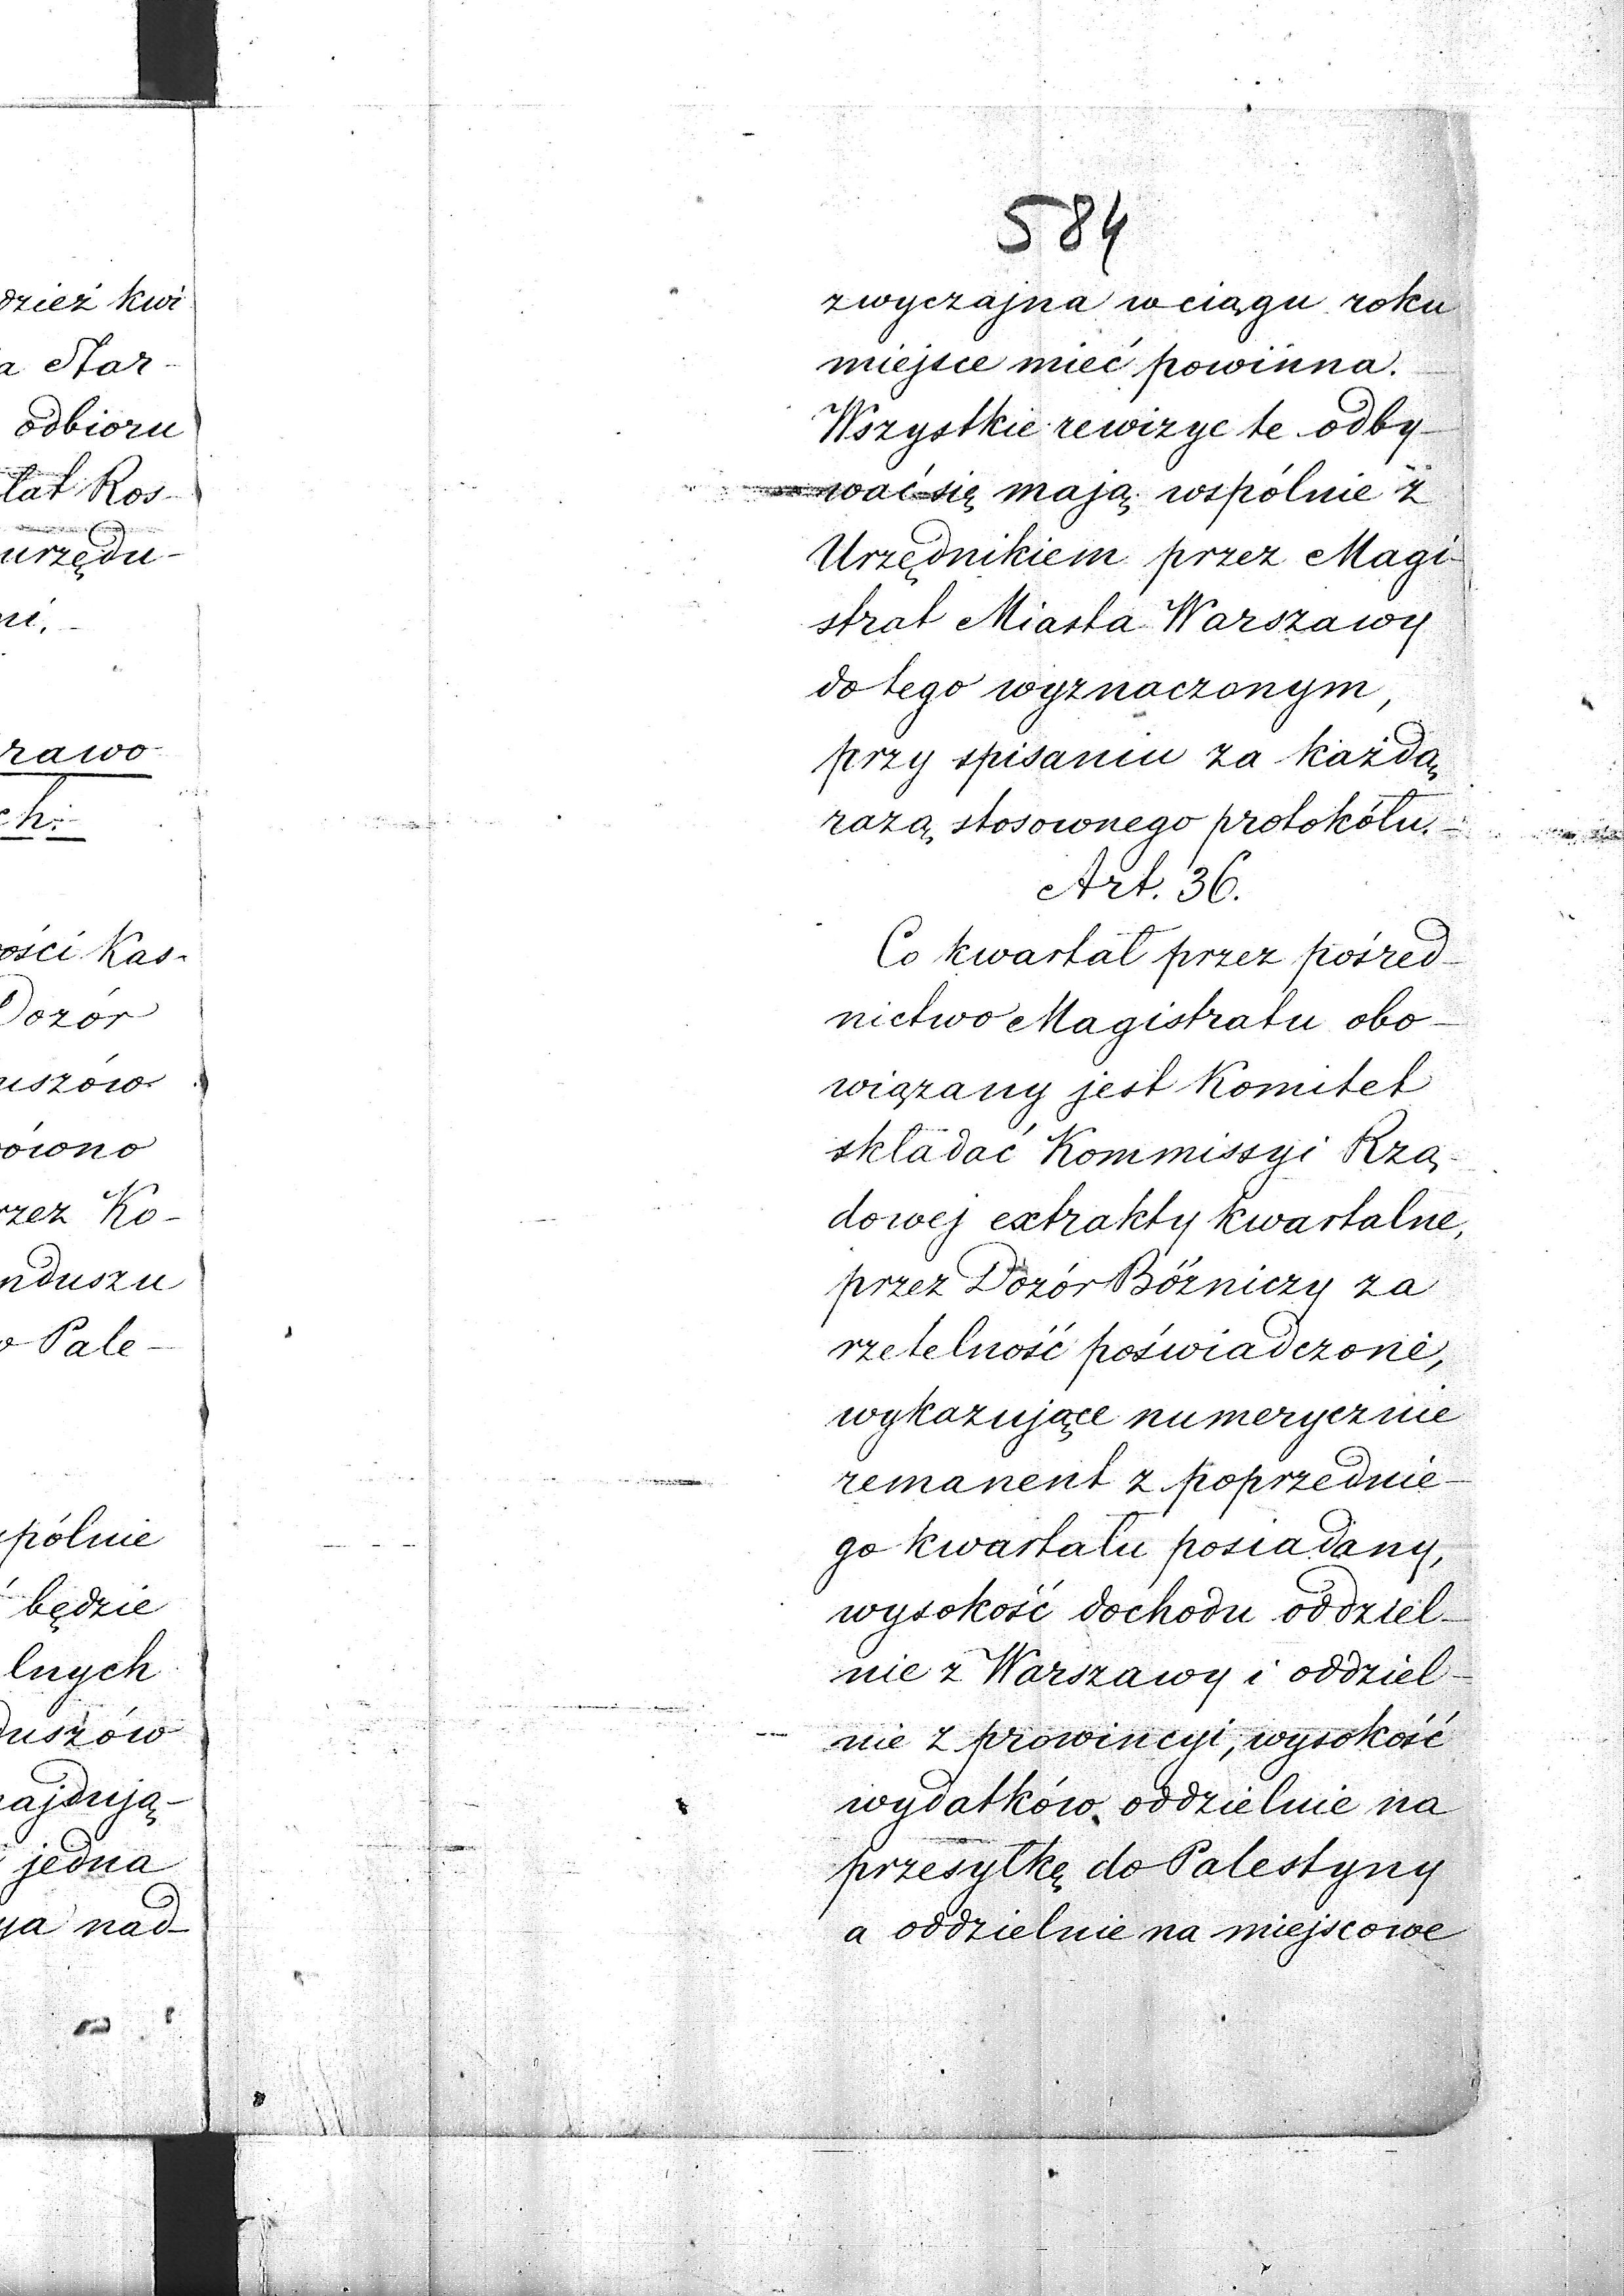 dzież kwi
a Star-
odbioru
łat Ros-
urzędu-
ni.
rawo
ch.
ości Kas-
Dozór
uszów
ówno
rzez Ko-
nduszu
o Pale-
spólnie
będzie
lnych
duszów
najdują-
jedna
ya nad-
584
zwyczajna w ciągu roku
miejsce mieć powinna.
Wszystkie rewizye te odby-
wać się mają wspólnie z
Urzędnikiem przez Magi-
strat Miasta Warszawy
do tego wyznaczonym,
przy spisaniu za każdą
razą stosownego protokółu.-
Art. 36.
Co kwartał przez pośred-
nictwo Magistratu obo-
wiązany jest Komitet
składać Kommissyi Rzą-
dowej extrakty kwartalne,
przez Dozór Bóżniczy za
rzetelność poświadczone,
wykazujące numerycznie
remanent z poprzednie-
go kwartału posiadany,
wysokość dochodu oddziel-
nie z Warszawy i oddziel-
nie z prowincyi, wysokość
wydatków oddzielnie na
przesyłkę do Palestyny
a oddzielnie na miejscowe